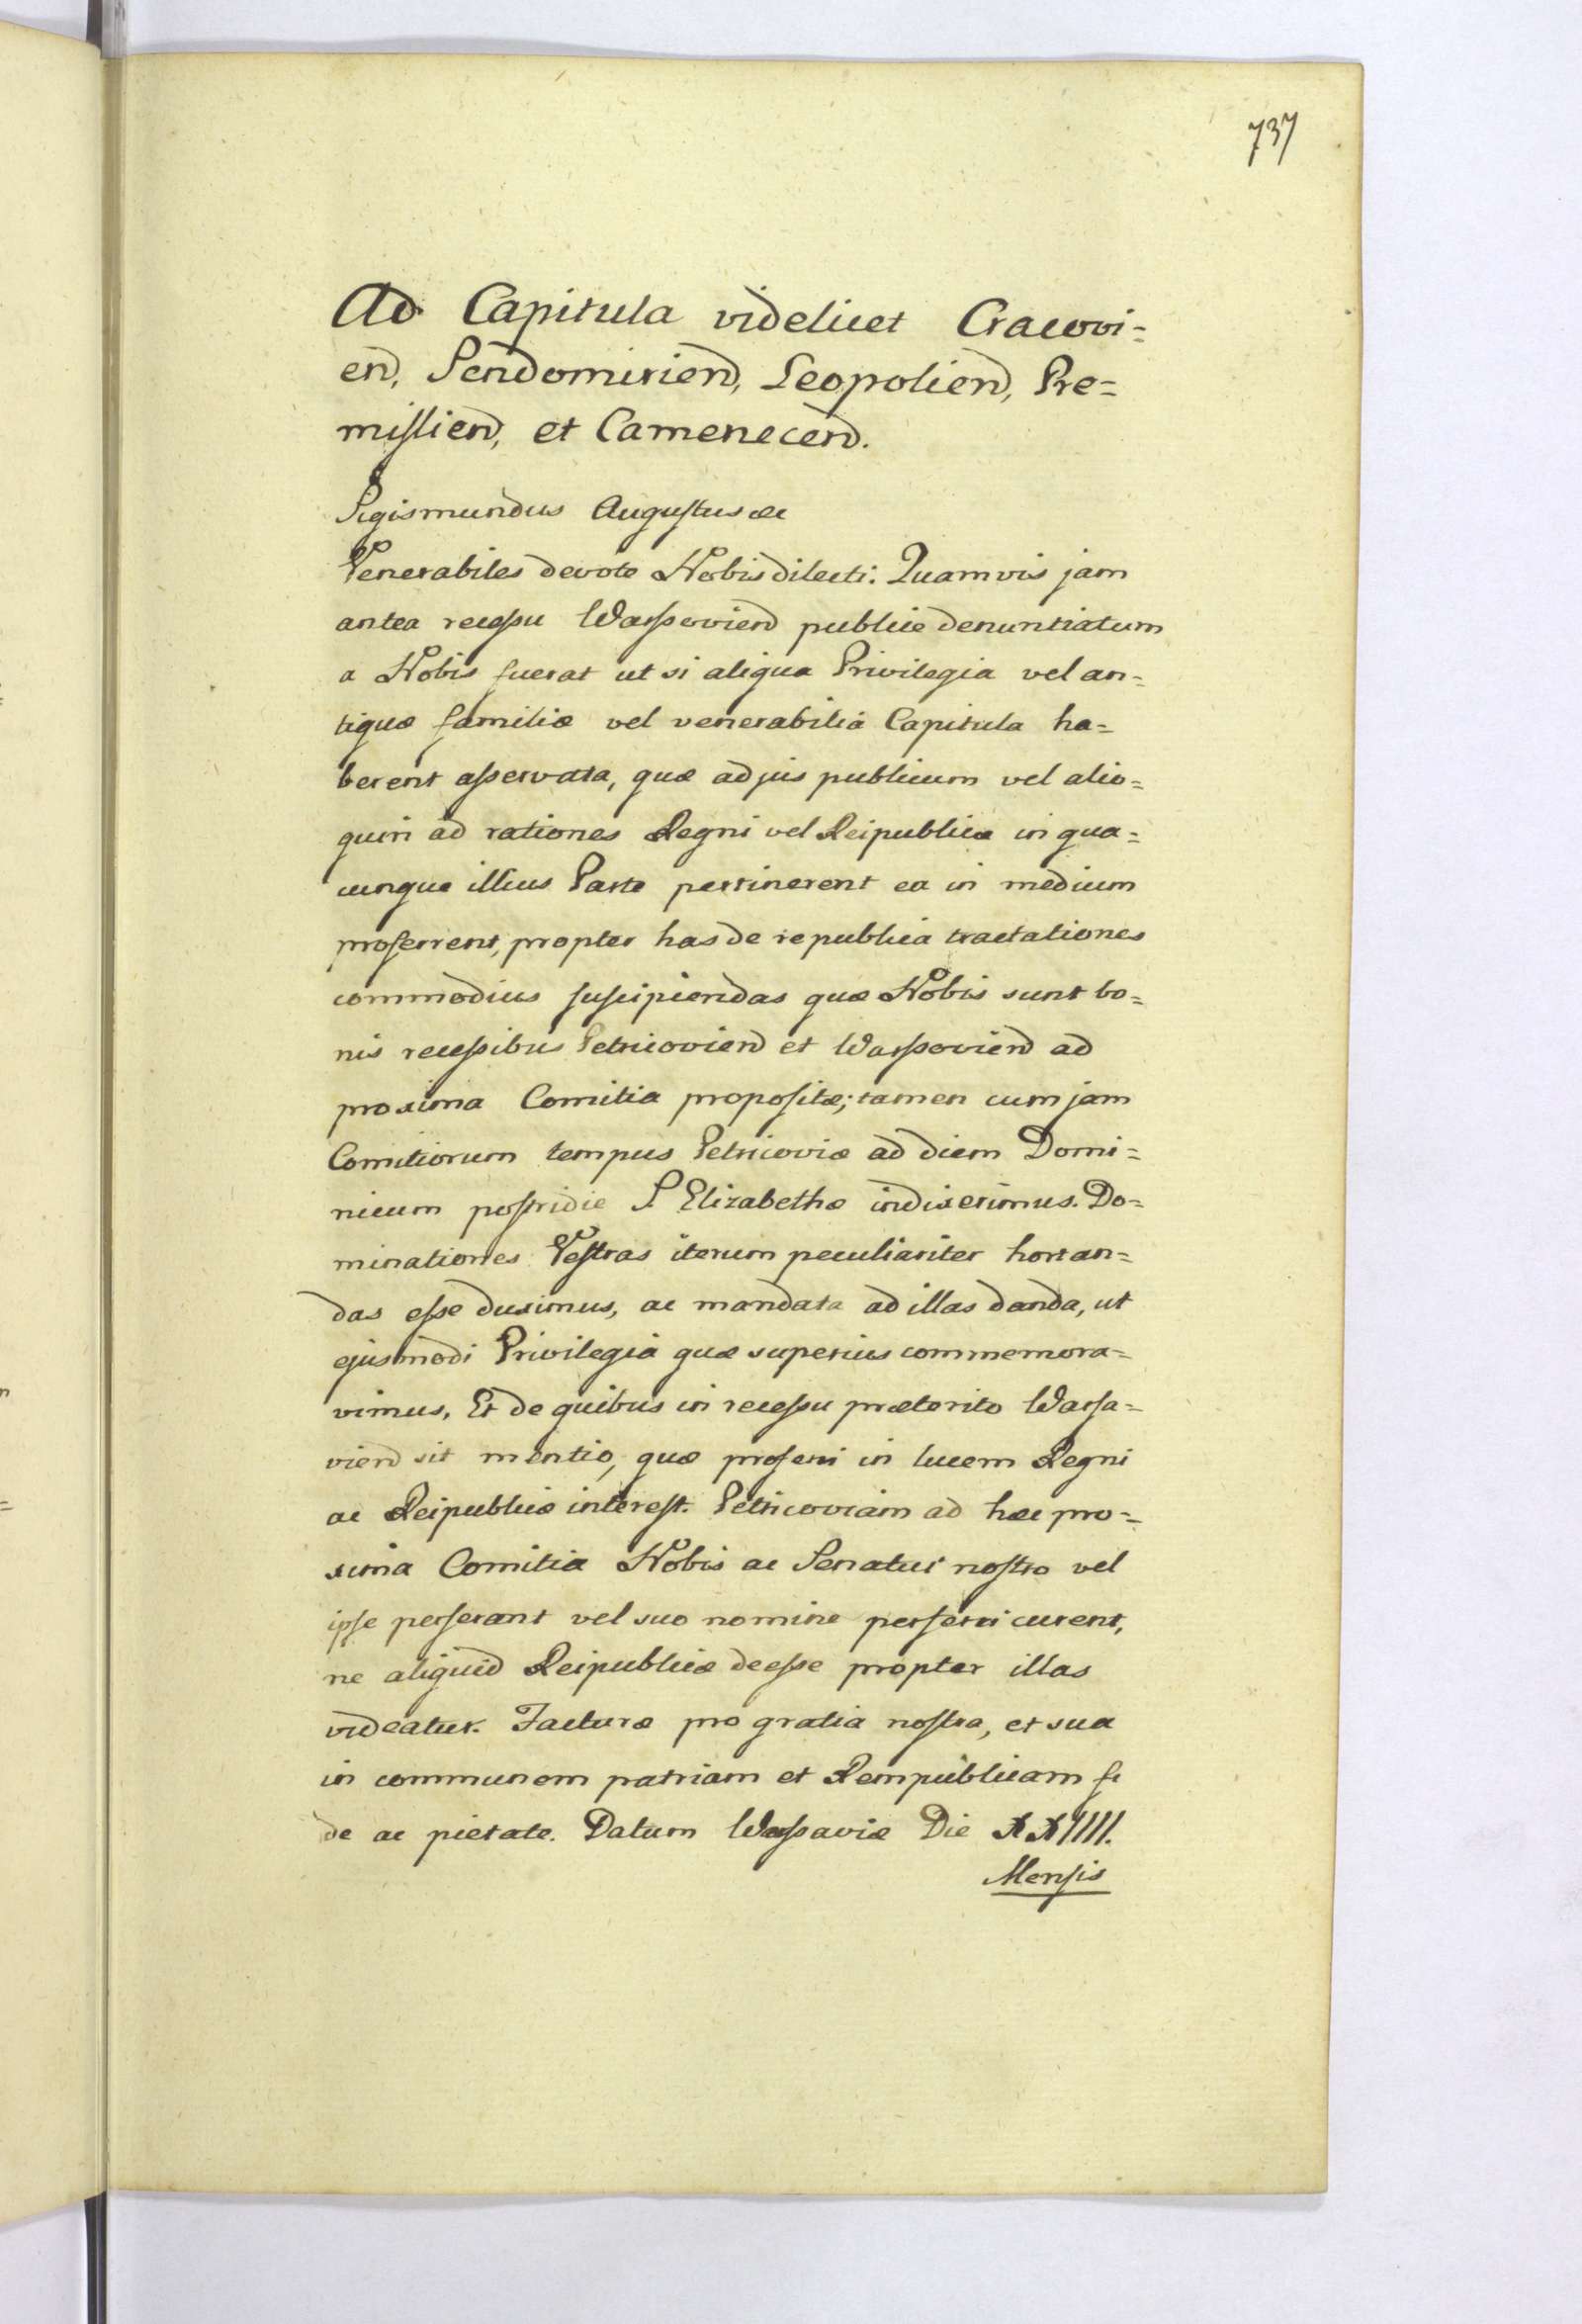 737
Ad Capitula videlicet Cracovi=
end, Sendomiriend, Leopoliend, Pre=
missliend, et Camenecend.
Sigismundus Augustus etc
Venerabiles devote Nobis dilecti. Quamvis jam
antea recessu Warssoviend publice denuntiatum
a Nobis fuerat ut si aliqua Privilegia vel an=
tiquæ familiæ vel venerabilia Capitula ha=
berent asservata, quæ ad jus publicum vel alio=
quin ad rationes Regni vel Reipublicæ in qua=
cunque illius Parte pertinerent ea in medium
proferrent, propter has de republica tractationes
commodius suscipiendas quæ Nobis sunt bo=
nis recessibus Petricoviend et Warssoviend ad
proxima Comitia propositæ; tamen cum jam
Comitiorum tempus Petricoviæ ad diem Domi=
nicum postridie S Elizabethæ indixerimus. Do=
minationes Vestras iterum peculiariter hortan=
das esse duximus, ac mandata ad illas danda, ut
ejusmodi Privilegia quæ superius commemora=
vimus, Et de quibus in recessu præterito Warsa=
viend sit mentio, quæ proferri in lucem Regni
ac Reipublicæ interest. Petricoviam ad hæc pro=
xima Comitia Nobis ac Senatui nostro vel
ipse perferant vel suo nomine perferri curent,
ne aliquid Reipublicæ deesse propter illas
videatur. Facturæ pro gratia nostra, et sua
in communem patriam et Rempublicam fi
de ac pietate. Datum Warssaviæ Die XXIIII.
Mensis